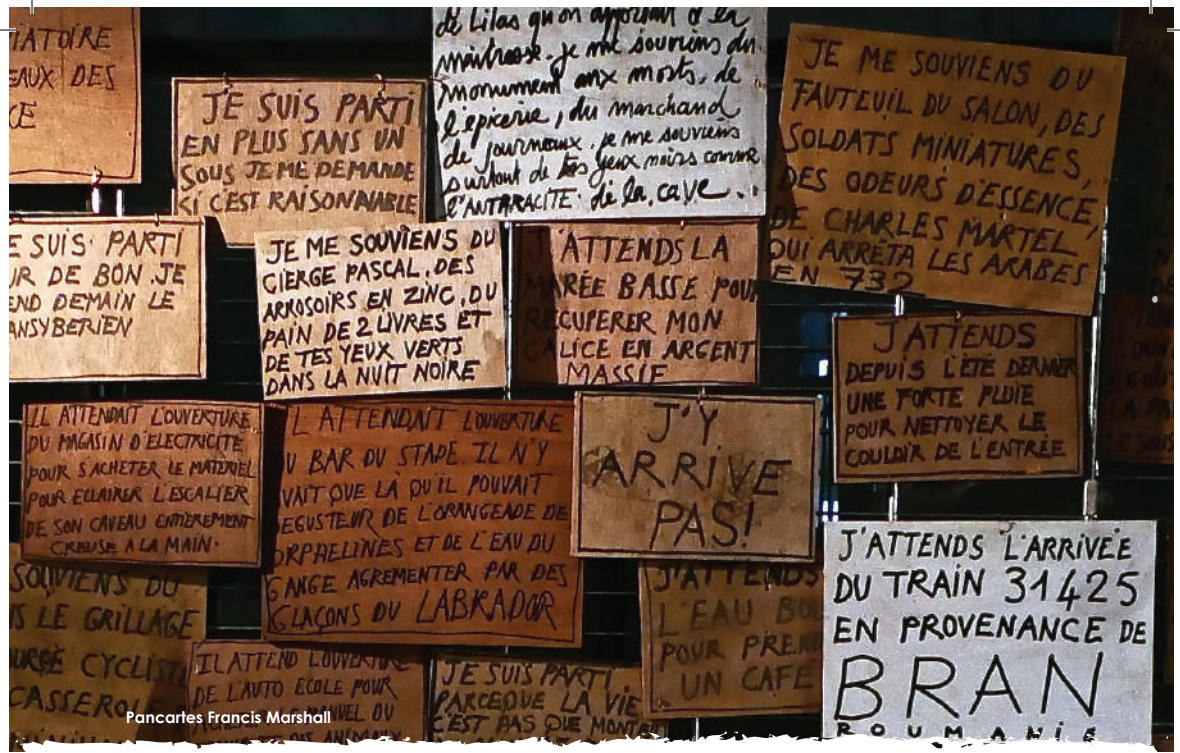 IATOIRE
EAUX DES
CE
JE SUIS PARTI
EN PLUS SANS UN
SOUS JE ME DEMANDE
SI C'EST RAISONNABLE
de Lilas qu'on apportait à la
maitresse. je me souviens du
monument aux morts, de
l'épicerie, du marchand
de journaux. je me souviens
surtout de tes yeux noirs comme
l'ANTHRACITE. de la cave...
JE ME SOUVIENS DU
FAUTEUIL DU SALON, DES
SOLDATS MINIATURES,
DES ODEURS D'ESSENCE,
DE CHARLES MARTEL,
QUI ARRÊTA LES ARABES
EN 732
E SUIS PARTI
UR DE BON. JE
END DEMAIN LE
ANSYBERIEN
JE ME SOUVIENS DU
CIERGE PASCAL, DES
ARROSOIRS EN ZINC, DU
PAIN DE 2 LIVRES ET
DE TES YEUX VERTS
DANS LA NUIT NOIRE
J'ATTENDS LA
MARÉE BASSE POUR
RECUPERER MON
CALICE EN ARGENT
MASSIF
J'ATTENDS
DEPUIS L'ÉTÉ DERNIER
UNE FORTE PLUIE
POUR NETTOYER LE
COULOIR DE L'ENTRÉE
IL ATTENDAIT L'OUVERTURE
DU MAGASIN D'ELECTRICITÉ
POUR S'ACHETER LE MATERIEL
POUR ECLAIRER L'ESCALIER
DE SON CAVEAU ENTIEREMENT
CREUSE A LA MAIN.
L ATTENDAIT L'OUVERTURE
U BAR DU STADE IL N'Y
VAIT QUE LÀ QU'IL POUVAIT
EGUSTEUR DE L'ORANGEADE DE
ORPHELINES ET DE L'EAU DU
GANGE AGREMENTER PAR DES
GLAÇONS DU LABRADOR
J'Y
ARRIVE
PAS!
J'ATTENDS L'ARRIVÉE
DU TRAIN 31425
EN PROVENANCE DE
BRAN
ROUMANIE
SOUVIENS DU
S LE GRILLAGE
URRE CYCLIST
CASSERO
IL ATTEND L'OUVERTURE
DE L'AUTO ECOLE POUR
NUEL DU
DES ANIMAUX
JE SUIS PARTI
PARCEQUE LA VIE
C'EST PAS QUE MONTE
J'ATTENDS
L'EAU BOU
POUR PREN
UN CAFE
Pancartes Francis Marshall